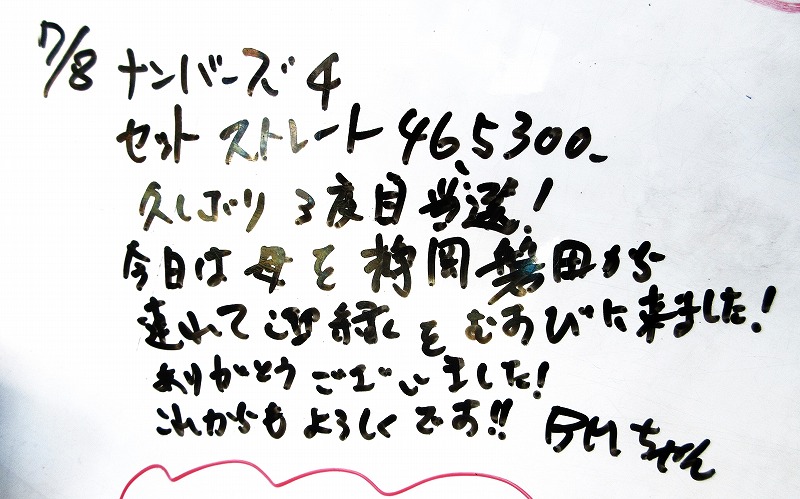 7/8 ナンバーズ4
セット ストレート 465,300-
久しぶり 3度目当選!
今日は母を静岡磐田から
連れて御縁をむすびに来ました!
ありがとうございました!
これからもよろしくです!! BMちゃん